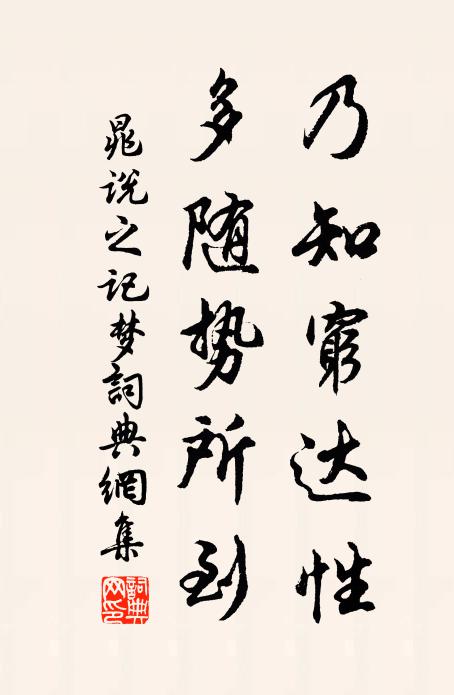 乃知窮达性
多随势所到
晁说之记梦詞典網集
詞典网印